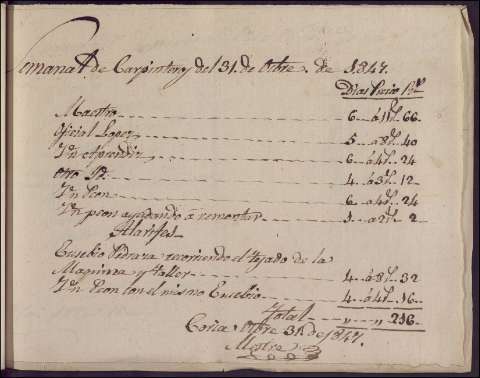 Semana de Carpinteros del 31. de Otbre. de 1847.
Dias Precio Rs.
Maestro 6 á 11 66
Oficial Lopez 5 á 8 40
Un Aprendiz 6 á 4 24
Otro Yd. 4 á 3 12
Un Peon 6 á 4 24
Un peon ayudando a remontar 1 á 2 2
Alarifes
Eusebio Pedraza recorriendo el tejado de la
Maquina y taller 4 á 8 32
Un Peon con el mismo Eusebio 4 á 4 16
Total " " 216
Coria Otbre 31 de 1847.
Mestre